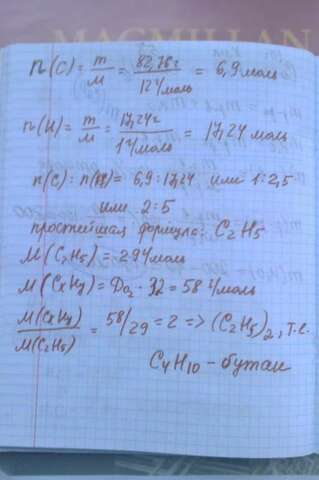 MACMILLAN
n(C) = m/M = 82,76г/12г/моль = 6,9 моль
n(H) = m/M = 17,24г/1г/моль = 17,24 моль
n(C) : n(H) = 6,9 : 17,24 или 1 : 2,5
или 2 : 5
простейшая формула: C2H5
M(C2H5) = 29г/моль
M(CxHy) = Do2 · 32 = 58 г/моль
M(CxHy)/M(C2H5) = 58/29 = 2 => (C2H5)2, т.е.
C4H10 - бутан